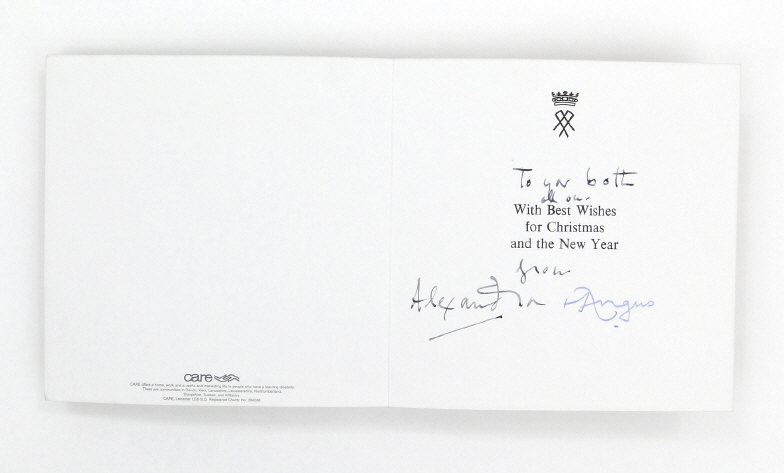 To you both
all our
With Best Wishes
for Christmas
and the New Year
from
Alexandra + Angus
care
CARE offers a home, work and a useful and interesting life to people who have a learning disability.
There are communities in Devon, Kent, Lancashire, Leicestershire, Northumberland,
Shropshire, Sussex, and Wiltshire.
CARE, Leicester Registered Charity No.